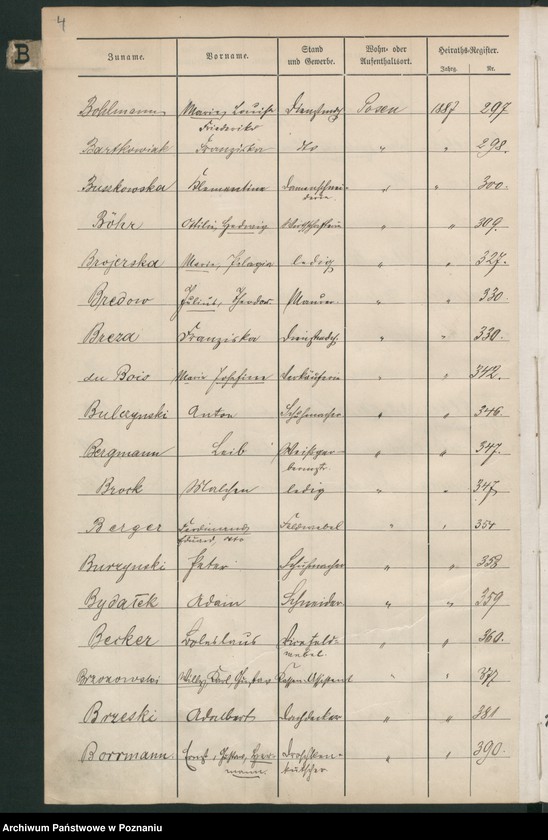 4
B
Zuname. Vorname. Stand und Gewerbe. Wohn- oder Aufenthaltsort. Heiraths-Register.
Jahrg. Nr.
Bohlmann Marie, Louise Friederike Dienstmdch Posen 1887 297
Bartkowiak Franziska dto " " 298.
Buszkowska Klementine Damenschneiderin " " 300.
Böhr Ottilie, Hedwig Wirthschafterin " " 309.
Brojerska Marie, Pelagia ledig " " 327.
Bredow Julius, Theodor Maurer " " 330.
Breza Franziska Dienstmdch. " " 330.
du Bois Marie Josefine Verkäuferin " " 342.
Bulczynski Anton Schuhmacher " " 346.
Bergmann Leib " " 347.
Brock Malchen ledig " " 347
Berger Ferdinand Eduard Otto Feldwebel " " 354
Burzynski Peter Schuhmacher " " 358
Bydałek Adam Schneider " " 359
Becker Boleslaus Vizefeldwebel. " " 360.
Brzozowski Willy, Karl, Gustav Kassen-Assistent " " 377
Brzeski Adalbert Dachdecker " " 381
Borrmann Ernst, Gustav, Hermann. Droschkenkutscher " " 390.
Archiwum Państwowe w Poznaniu